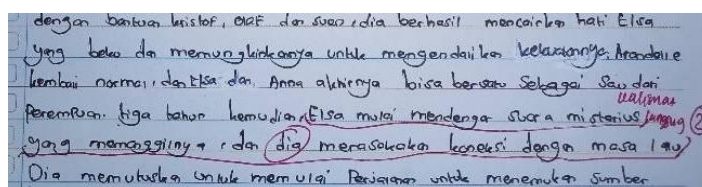 dengan bantuan kristof, olaf dan sven, dia berhasil mencairkan hati Elsa
yang beku dan memungkinkannya untuk mengendalikan kekuatannya. Arandelle
kembali normal, dan Elsa dan Anna akhirnya bisa bersatu sebagai saudari
kalimat
Perempuan. tiga tahun kemudian, Elsa mulai mendengar suara misterius, langsung 2
yang memanggilnya, dan dia merasakan koneksi dengan masa lalu
Dia memutuskan untuk memulai Perjalanan untuk menemukan sumber